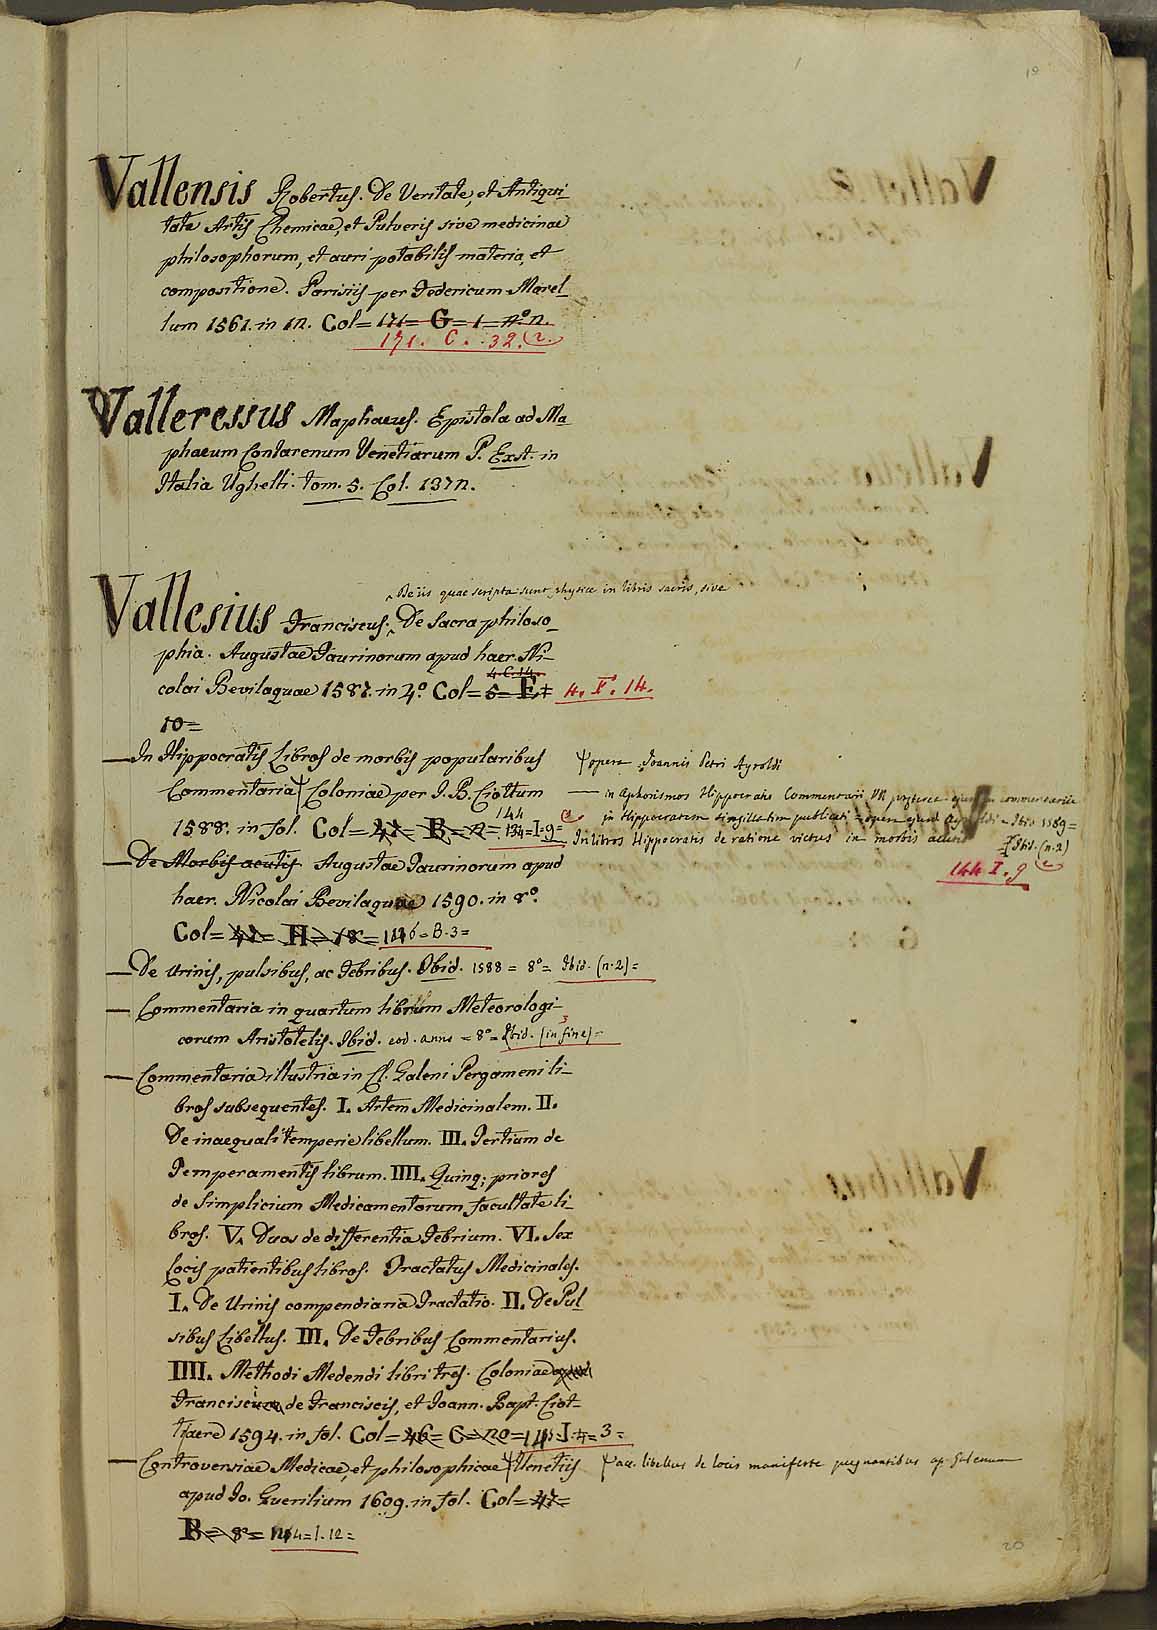 19
Vallensis Robertus. De Veritate, et Antiqui-
tate Artis Chemicae, et Pulveris sive medicinae
philosophorum, et auri potabilis materia, et
compositione. Parisiis per Federicum Morel-
lum 1561. in 12. Col= 171= G= 1= n.º 2.
171. C. 32. (2.
Valleressus Maphaeus. Epistola ad Ma-
phaeum Contarenum Venetiarum P. Exst. in
Italia Ughelli. tom. 5. Col. 1372.
De iis quae scripta sunt physice in libris sacris, sive
Vallesius Franciscus. De Sacra philoso-
phia. Augustae Taurinorum apud haer. Ni-
4. C. 14.
colai Bevilaquae 1587. in 4.º Col= 5= F. 4. F. 14.
10=
— In Hippocratis Libros de morbis popularibus
Commentaria Coloniae per J. B. Ciottum
144
1588. in fol. Col= 42= B= 2= 134=I.9=
opera Joannis Petri Ayroldi
— in Aphorismos Hippocratis Commentarii VII
in Hippocratem singillatim publicati = opera ejusd. Ayroldi = Ibid 1589=
In libros Hippocratis de ratione victus in morbis acutis Ibid. (n. 2)
144 I. 9
— De Morbis acutis Augustae Taurinorum apud
haer. Nicolai Bevilaquae 1590. in 8.º
Col= 42= H= 18= 146= B. 3=
— De Urinis, pulsibus, ac Febribus. Ibid. 1588 = 8º= Ibid. (n. 2)=
— Commentaria in quartum librum Meteorologi-
corum Aristotelis. Ibid. eod. anno = 8º= Ibid. (in fine)=
3
— Commentaria illustria in Cl. Galeni Pergameni li-
bros subsequentes. I. Artem Medicinalem. II.
De inaequali temperie libellum. III. Tertium de
Temperamentis librum. IIII. Quinq; priores
de Simplicium Medicamentorum facultate li-
bros. V. Duos de differentia Febrium. VI. Sex
Locis patientibus libros. Tractatus Medicinales.
I. De Urinis compendiaria Tractatio. II. De Pul-
sibus Libellus. III. De Febribus Commentarius.
IIII. Methodi Medendi libri tres. Coloniae apud
Francisci de Franciscis, et Joann. Bapt. Ciot-
ti aere 1594. in fol. Col= 46= C= 20= I. 4= 3=
— Controversiae Medicae, et philosophicae Venetiis
acc. libellus de locis manifeste pugnantibus ap. Galenum
apud Jo. Guerilium 1609. in fol. Col= 42=
B= 8= 144= I. 12=
20